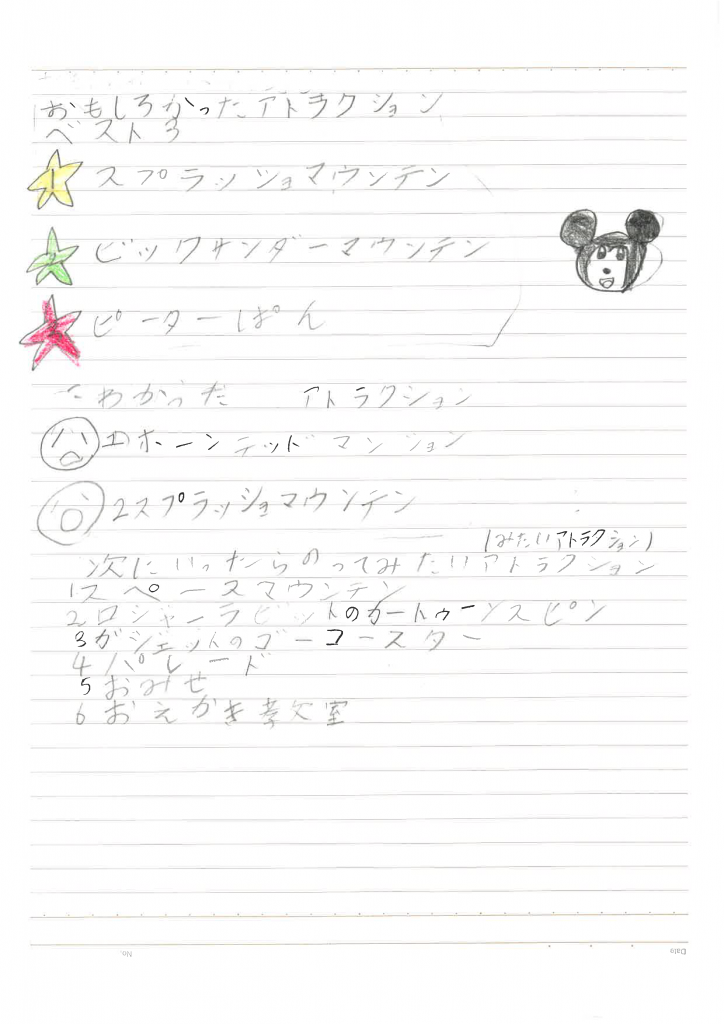 おもしろかったアトラクション
ベスト3
1 スプラッショマウンテン
2 ビックサンダーマウンテン
3 ピーターぱん
こわかった アトラクション
1 ホーンテッドマンション
2 スプラッショマウンテン
(みたいアトラクション)
次にいったらのってみたいアトラクション
1 スペースマウンテン
2 ロジャーラビットのカートゥーンスピン
3 ガジェットのゴーコースター
4 パレード
5 おみせ
6 おえかき教室
No.
Date